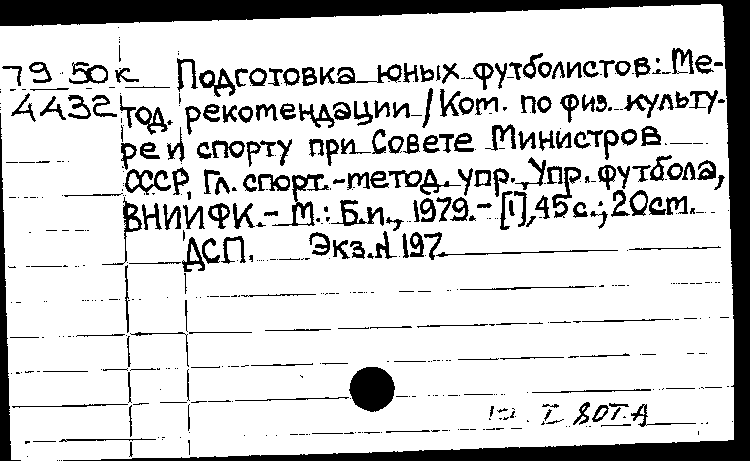 79 50к Подготовка юных футболистов: Ме-
4432 тод. рекомендации / Ком. по физ. культу-
ре и спорту при Совете Министров
СССР, Гл. спорт.-метод. упр., Упр. футбола,
ВНИИФК. - М.: Б.и., 1979. - [1], 45 с.; 20 cm.
ДСП. Экз. N 197.
I 80T.A